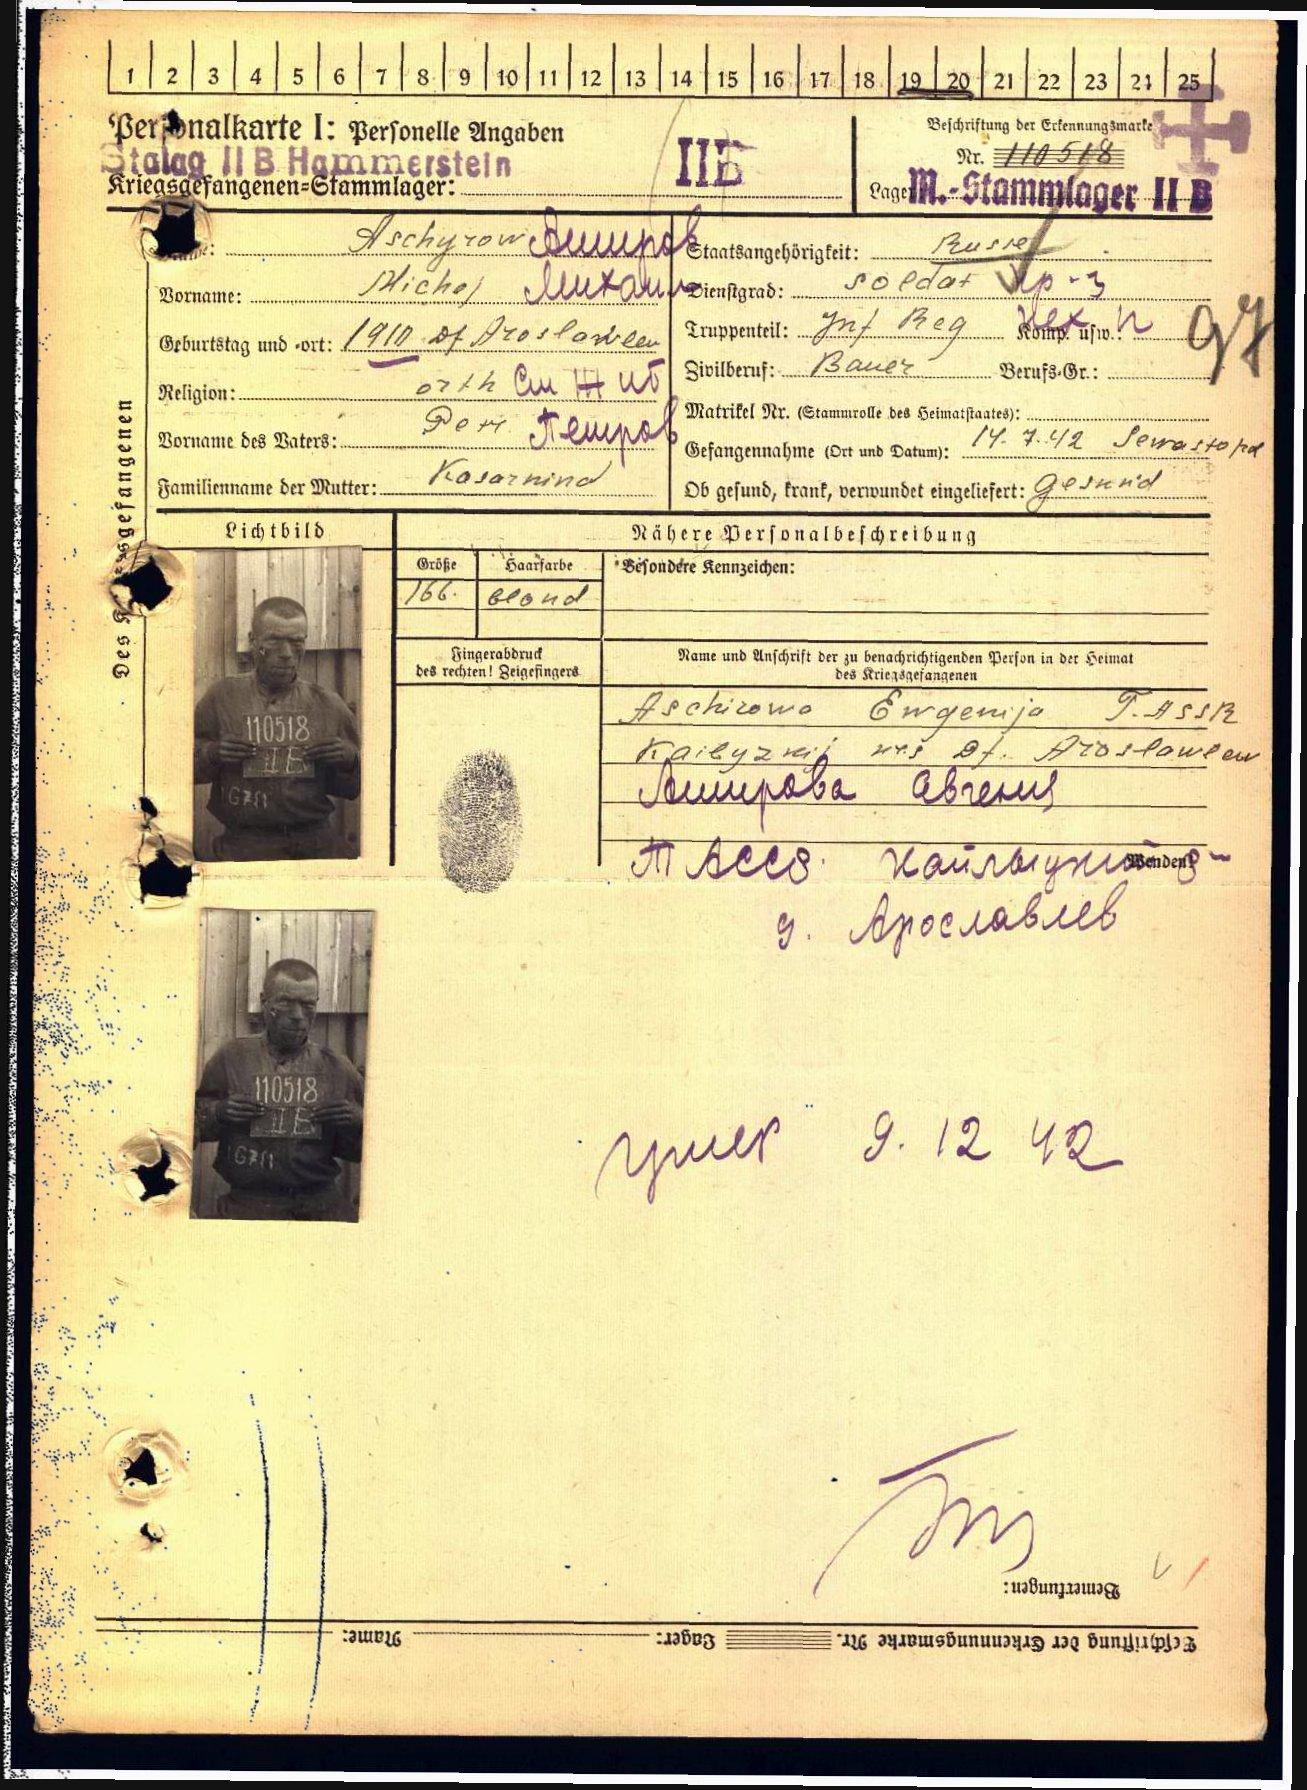 1 2 3 4 5 6 7 8 9 10 11 12 13 14 15 16 17 18 19 20 21 22 23 24 25
Personalkarte I: Personelle Angaben
Stalag II B Hammerstein
Kriegsgefangenen-Stammlager:
II B
Beschriftung der Erkennungsmarke
Nr. 110518
Lager: M.-Stammlager II B
Des Kriegsgefangenen
Name: Aschyrow Аширов
Vorname: Michej Михаил
Geburtstag und -ort: 1910 Df Aroslawlew
Religion: orth
Vorname des Vaters: Петров
Familienname der Mutter: Kasarnind
Staatsangehörigkeit: Russe
Dienstgrad: Soldat кр-ц
Truppenteil: Jnf Reg Komp. usw.:
97
Zivilberuf: Bauer Berufs-Gr.:
Matrikel Nr. (Stammrolle des Heimatstaates):
Gefangennahme (Ort und Datum): 14.7.42 Sewastopol
Ob gesund, krank, verwundet eingeliefert: gesund
Lichtbild
Nähere Personalbeschreibung
Größe Haarfarbe Besondere Kennzeichen:
166. blond
Fingerabdruck
des rechten! Zeigefingers
Name und Anschrift der zu benachrichtigenden Person in der Heimat
des Kriegsgefangenen
Aschirowa Ewgenija T.ASSR
Kaibyzkij Df. Aroslawlew
Аширова Евгения
Т АССР
Wenden!
д. Арославлев
110518
II B
110518
II B
умер 9.12 42
Bemerkungen:
Beschriftung der Erkennungsmarke Nr. Lager: Name: